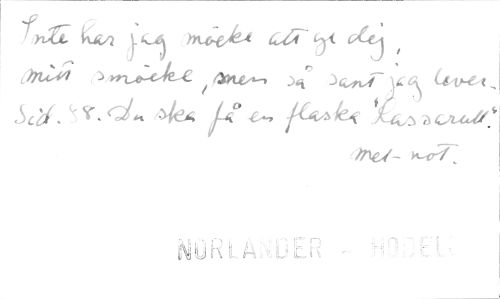 Inte har jag möcke att ge dig,
mitt smöcke, men så sant jag lever.
Sid. 88. Du ska få en flaska "Kassarull."
mel-not.
NORLANDER - HODELL